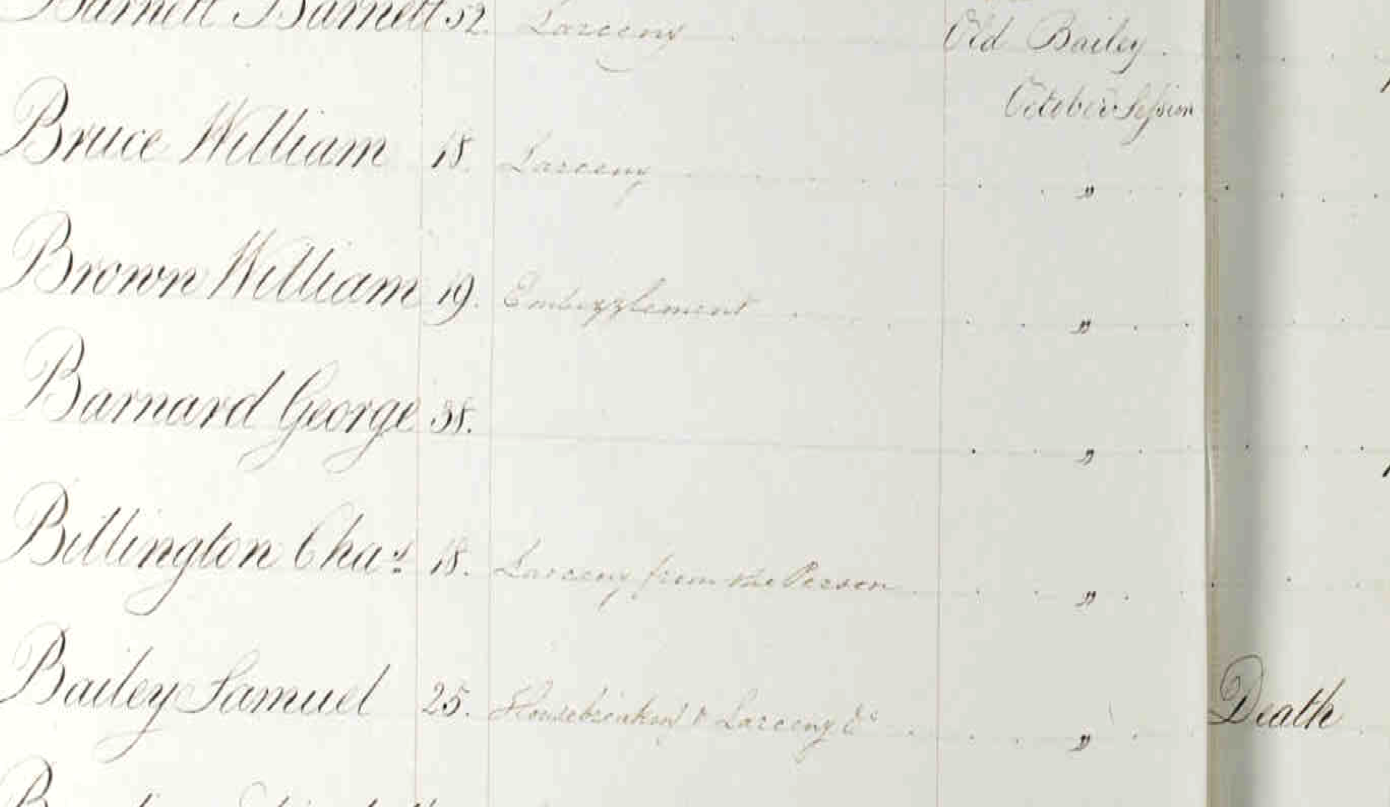 Barnett Barnett 52. Larceny Old Bailey
October Session
Bruce William 18. Larceny "
Brown William 19. Embezzlement "
Barnard George 38. "
Billington Chas. 18. Larceny from the Person "
Bailey Samuel 25. Housebreaking & Larceny &c "  Death